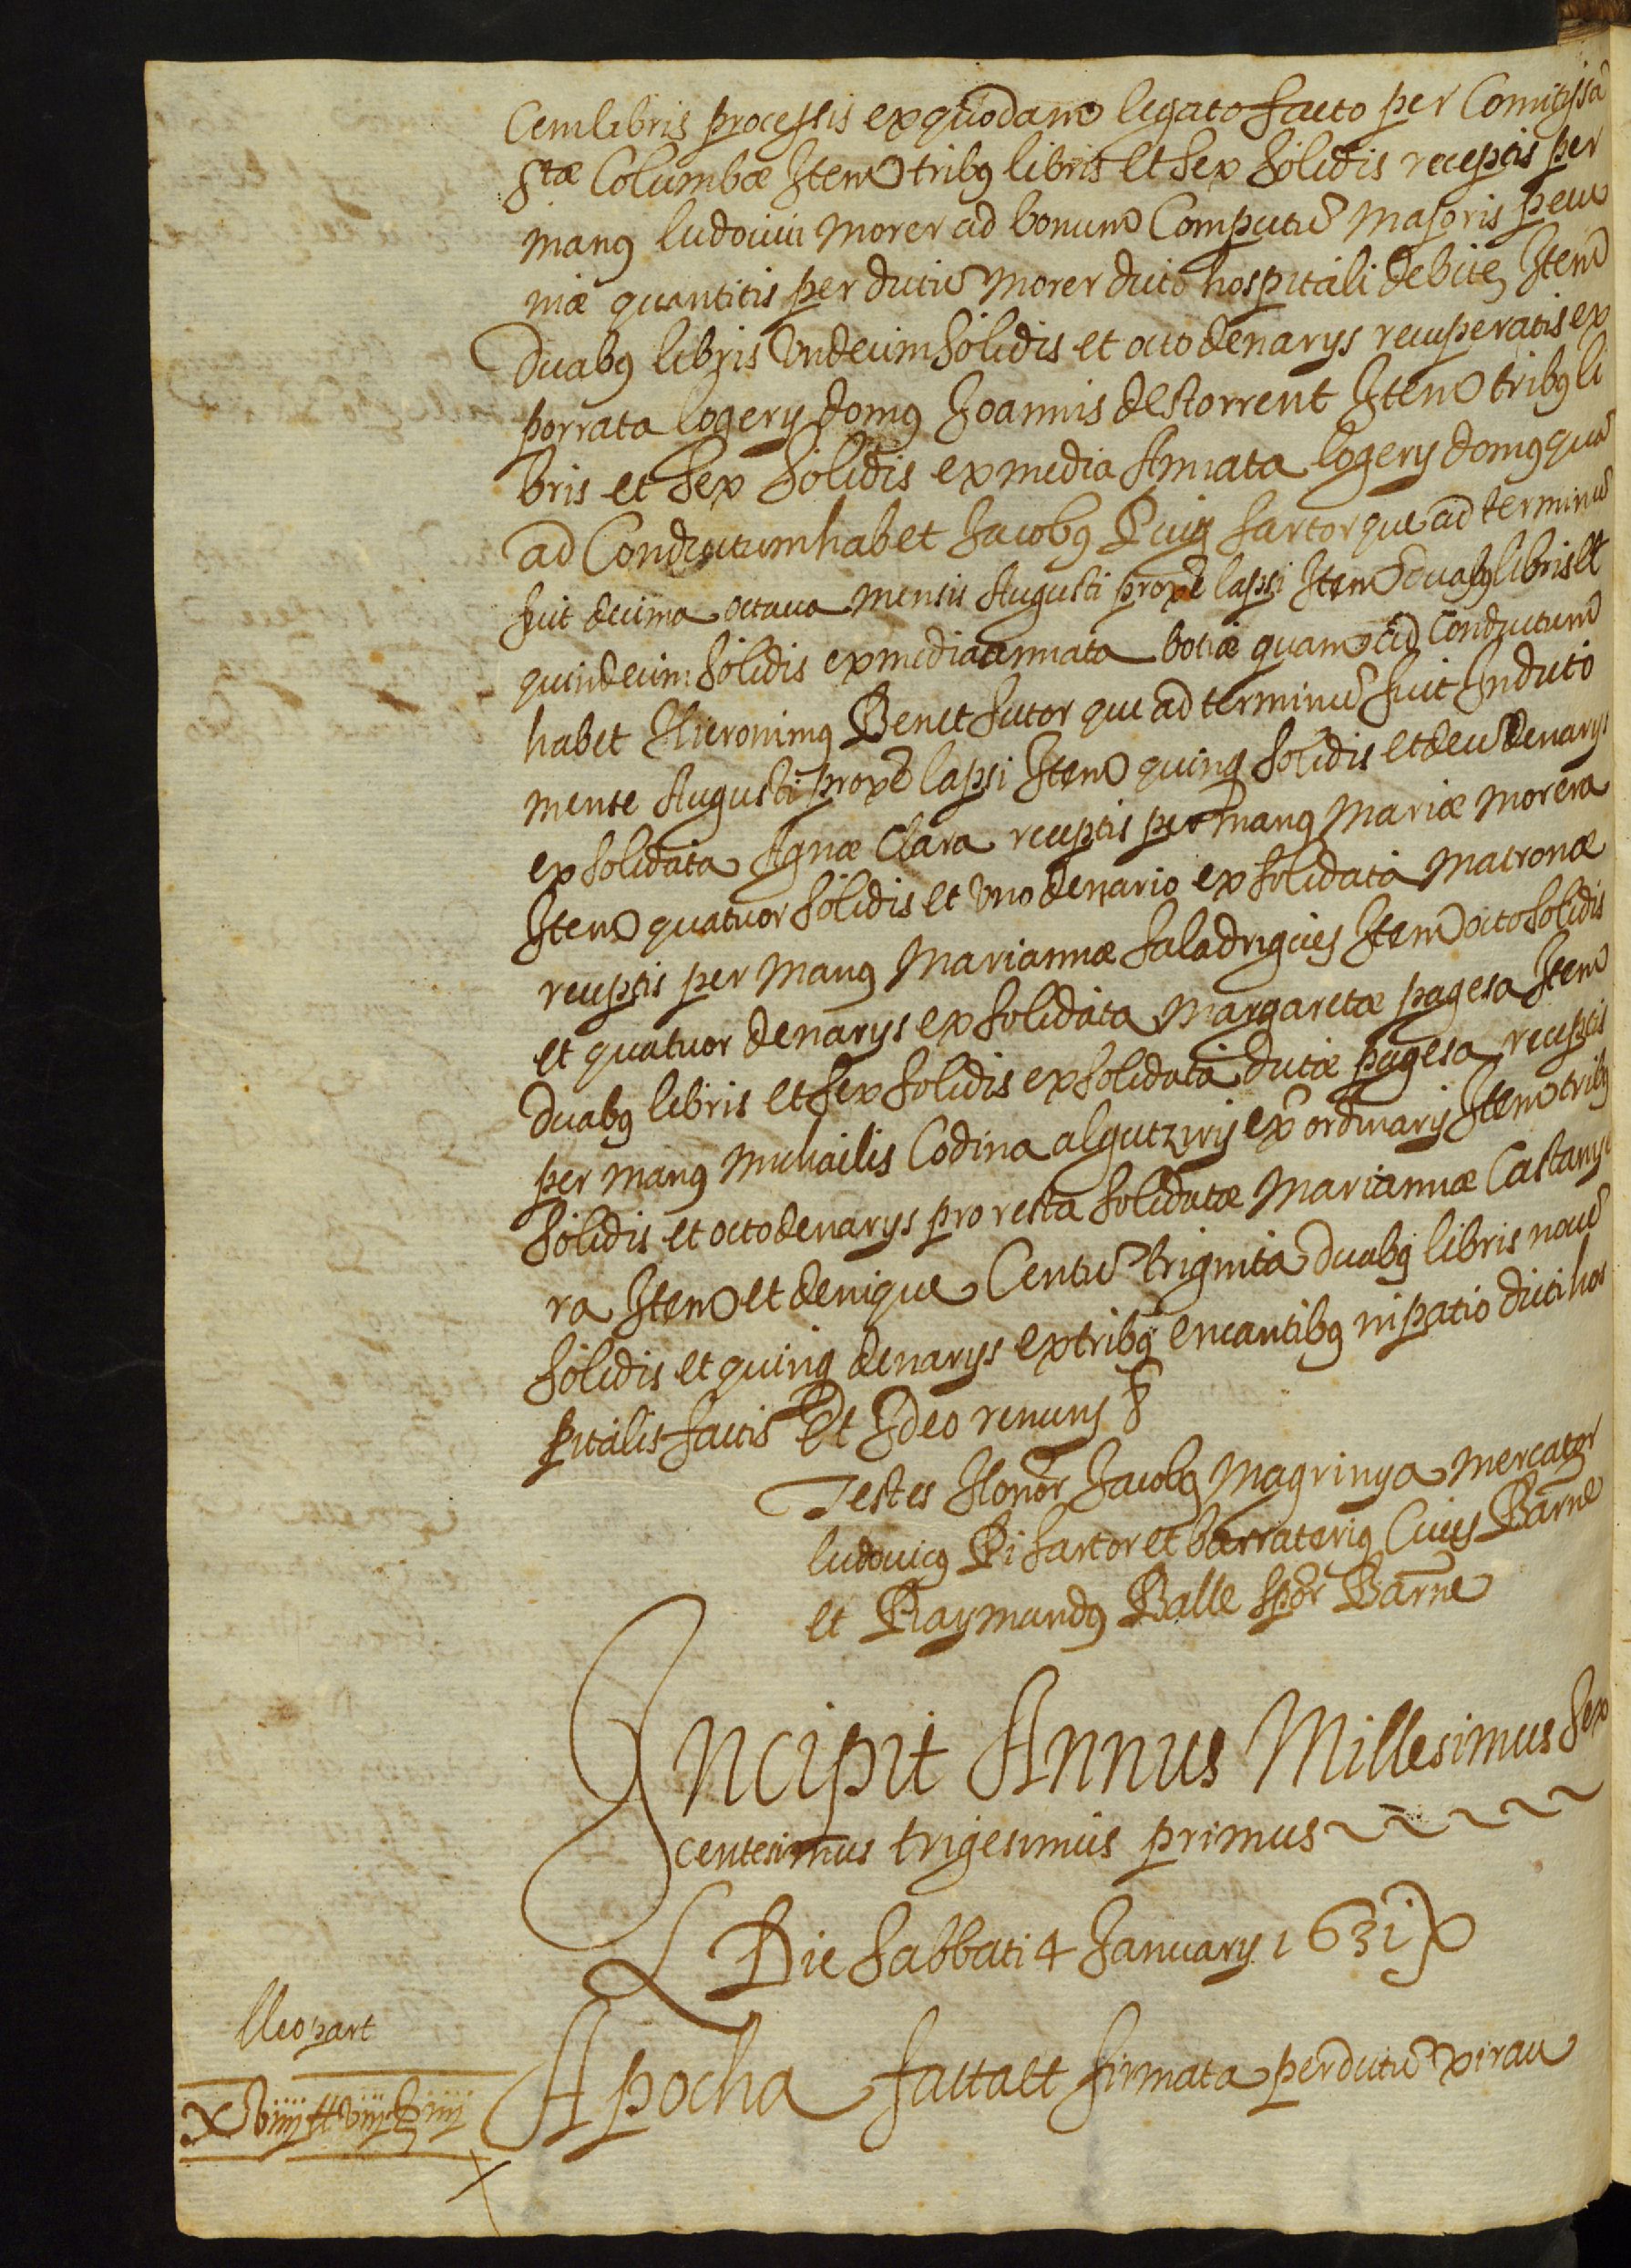 Cem libris processis ex quodam legato facto per Comitissã
Stæ Columbæ Item tribꝰ libris et sex solidis receptis per
manꝰ ludovici Morer ad bonum Computũ Majoris pecu
niæ quantitis per dictũ Morer dicto hospitali debite Item
duabꝰ libris undecim solidis et octo denarys recuperatis ex
porrata logery domꝰ Joannis destorrent Item tribꝰ li
bris et sex solidis ex media Annata logery domꝰ quã
ad Conductum habet Jacobꝰ Puig sartor que ad terminũ
fuit decima octava mensis Augusti proxe lapsi Item duabꝰ libris et
quindecim solidis ex media annata botiæ quam ad Conductum
habet Hieronimꝰ Benet sutor que ad terminũ fuit In dicto
mense Augusti proxe lapsi Item quinqꝫ solidis et decẽ denarys
ex solidata Agnæ Clara receptis per manꝰ Mariæ Morera
Item quatuor solidis et uno denario ex solidata Matronæ
receptis per manꝰ Mariannæ Saladrigues Item octo solidis
et quatuor denarys ex solidata Margaretæ pagesa Item
duabꝰ libris et sex solidis ex solidata dictæ pagesa receptis
per manꝰ Michaelis Codina algutzirij ex ordinarij Item tribꝰ
solidis et octo denarys pro resta solidatæ Mariannæ Castanye
ra Item et denique Centũ triginta duabꝰ libris novẽ
solidis et quinqꝫ denarys ex tribꝰ encantibꝰ in patio dicti hos
pitalis factis Et Ideo renuns &
Testes Honor Jacobꝰ Magrinya mercator
ludovicꝰ Pi sartor et barraterius Cives Barne
et Raymundꝰ Balle Scpor Barne
Incipit Annus Millesimus Sex
centesimus trigesimus primus
Die Sabbati 4 January 1631
lleopart
Apocha facta et firmata per dictũ xirau